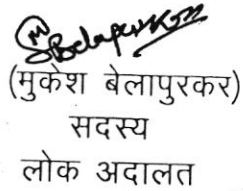 (मुकेश बेलापुरकर)
सदस्य
लोक अदालत